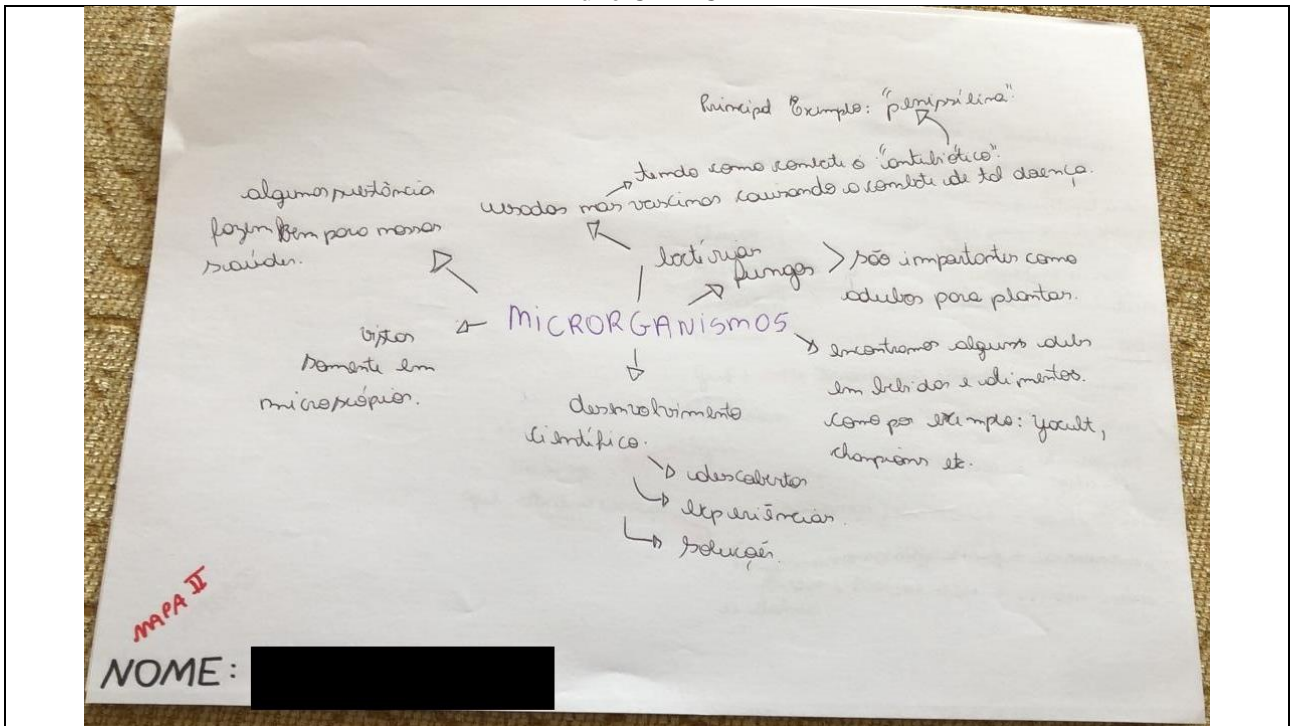 Principal Exemplo: "penipsílina".
tendo como combate o "antibiótico".
usados nas vascinas causando o combate de tal doença.
algumas substância
fazem bem para nossas
saúdes.
bactérias
fungos > são importantes como
adubos para plantas.
MICRORGANISMOS
vistos
somente em
microscópios.
encontramos alguns deles
em bebidas e alimentos.
como por exemplo: yacult,
champions etc.
desenvolvimento
científico.
descobertas
experiências.
soluções.
MAPA II
NOME: